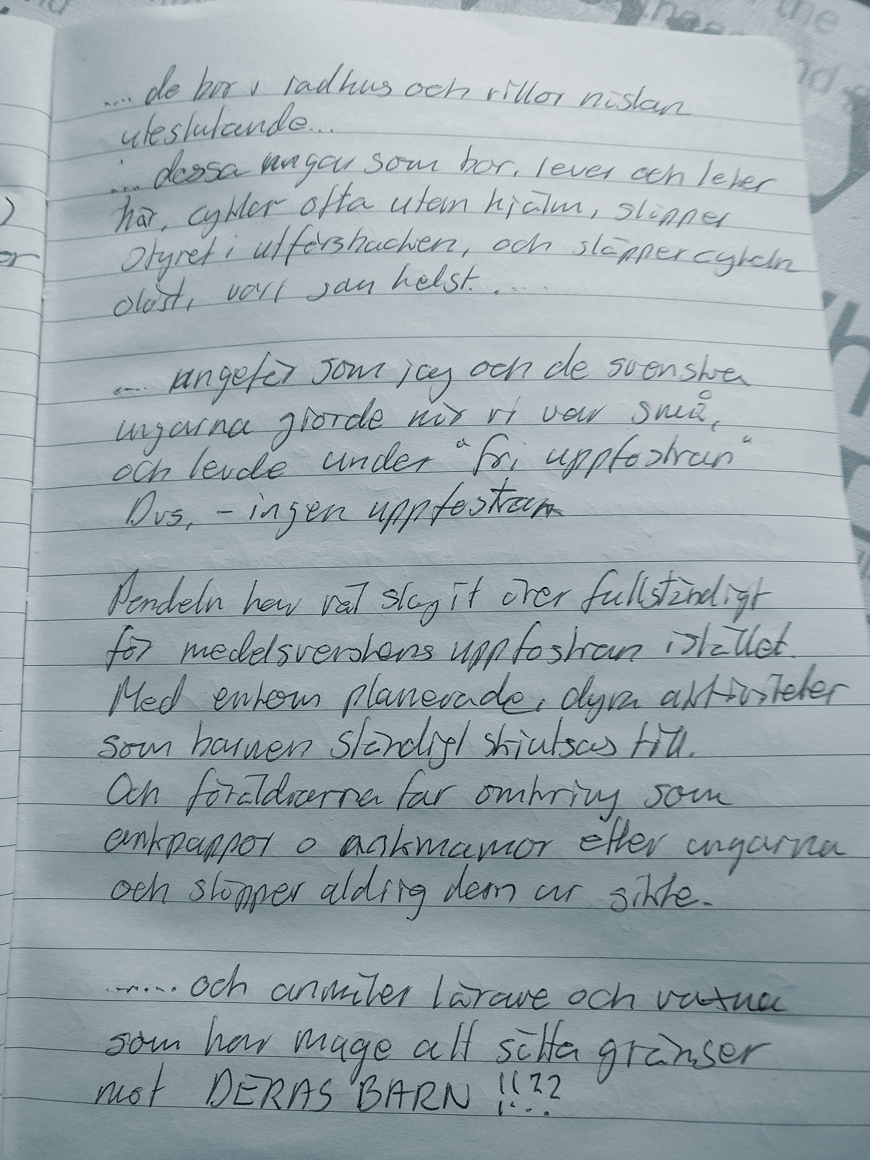 .... de bor i radhus och villor nästan
uteslutande...
... dessa ungar som bor, lever och leker
här, cyklar ofta utan hjälm, släpper
styret i utförsbacken, och släpper cykeln
olåst, vart som helst.....
.... ungefär som jag och de svenska
ungarna gjorde när vi var små,
och levde under "fri uppfostran"
Dvs, - ingen uppfostran
Pendeln har väl slagit över fullständigt
för medelsvenskens uppfostran istället.
Med enkom planerade, dyra aktiviteter
som barnen ständigt skjutsas till.
Och föräldrarna far omkring som
ankpappor o ankmamor efter ungarna
och släpper aldrig dem ur sikte.
....... och anmäler lärare och vuxna
som har mage att sätta gränser
mot DERAS BARN !!??
or
the